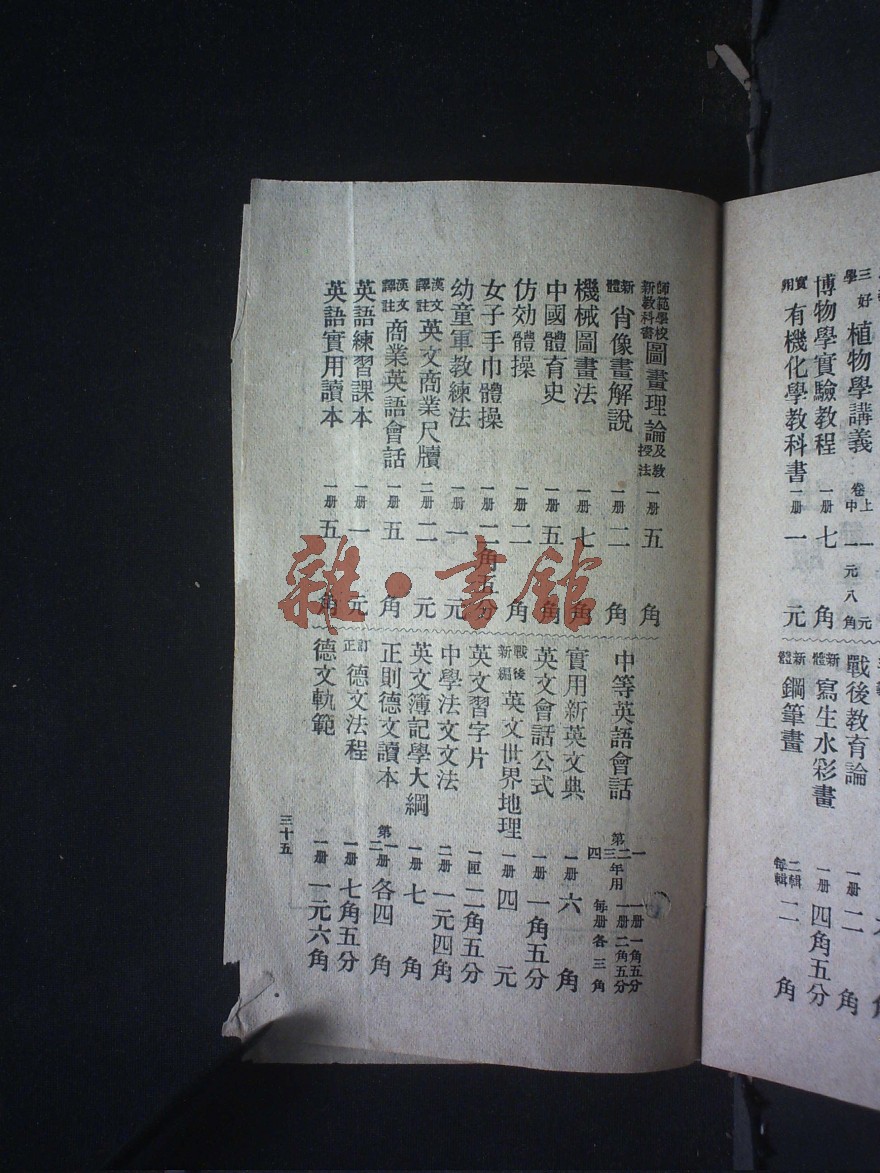 學三好植物學講義 卷上中 一元 一元八角
博物學實驗教程 一册 七角
實用有機化學教科書 一册 一元
戰後教育論 一册 二角
新體寫生水彩畫 一册 四角五分
新體鋼筆畫 二輯 每輯 二角
師範學校新教科書圖畫理論及教授法 一册 五角
新體肖像畫解說 一册 二角
機械圖畫法 一册 七角
中國體育史 一册 五角
仿効體操 一册 二角
女子手巾體操 一册 二角五分
幼童軍教練法 一册 一元
漢文譯註英文商業尺牘 二册 二元
漢文譯註商業英語會話 一册 五角
英語練習課本 一册 一元
英語實用讀本 一册 五角
中等英語會話 第一二三四年用 一册 一角五分 一册 二角五分 每册各三角
實用新英文典 一册 六角
英文會話公式 一册 一角五分
戰後新編英文世界地理 一册 四元
英文習字片 一匣 二角五分
中學法文文法 二册 一元四角
英文簿記學大綱 一册 七角
正則德文讀本 第一二册 各四角
訂正德文法程 一册 七角五分
德文軌範 一册 一元六角
三十五
雜·書館